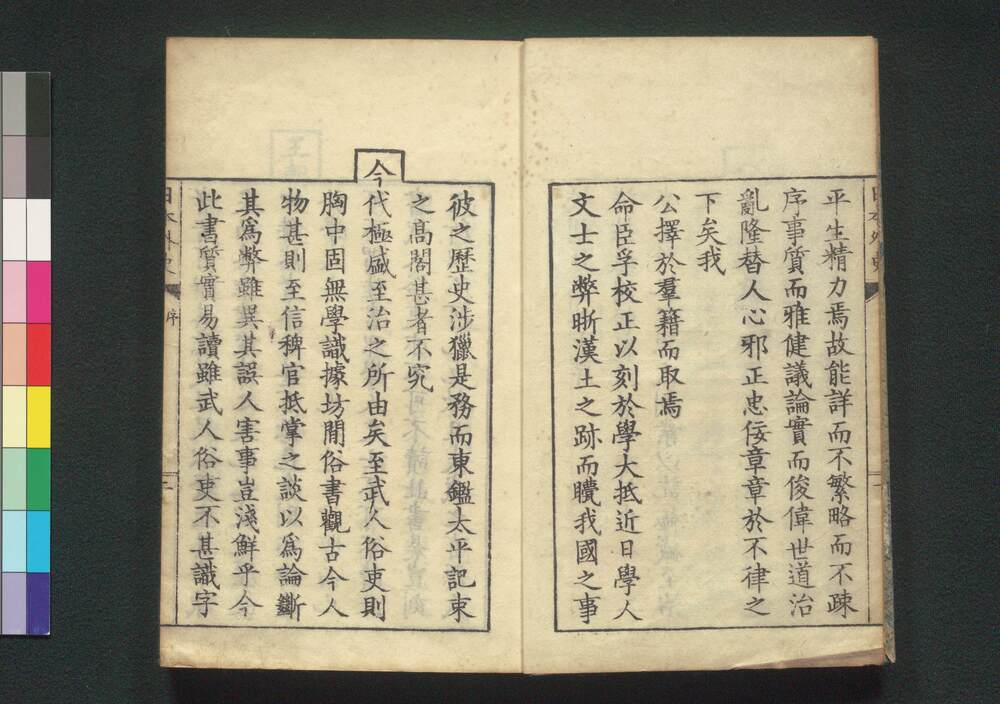 平生精力焉故能詳而不繁略而不疎
序事質而雅健議論實而俊偉世道治
亂隆替人心邪正忠佞章章於不律之
下矣我
公擇於羣籍而取焉
命臣孚校正以刻於學大抵近日學人
文士之弊晰漢土之跡而瞶我國之事
彼之歷史涉獵是務而東鑑太平記束
之髙閣甚者不究
今
代極盛至治之所由矣至武人俗吏則
胸中固無學識據坊間俗書觀古今人
物甚則至信稗官抵掌之談以爲論斷
其爲弊雖異其誤人害事豈淺鮮乎今
此書質實易讀雖武人俗吏不甚識字
日本外史
序
二